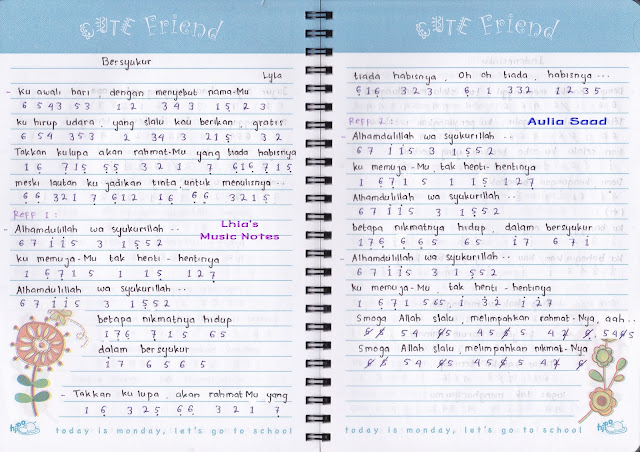 CUTE Friend
Bersyukur
Lyla
- Ku awali hari dengan menyebut nama-Mu
6 5 4 3 5 3 1 2 3 4 3 1 5 2 3
ku hirup udara, yang slalu kau berikan, gratis
6 5 4 3 5 3 2 3 4 3 2 1 5 3 3 2
Takkan kulupa akan rahmat-Mu yang tiada habisnya
1 6 7 1 5 5 5 3 2 1 7 6 1 6 7 1 5
meski lautan ku jadikan tinta, untuk menulisnya ..
6 6 3 2 1 7 6 1 2 1 6 6 6 3 2 1 5
Reff 1 :
- Alhamdulillah wa syukurillah ..
6 7 i i 5 3 1 5 5 2
Lhia's
Music Notes
ku memuja-Mu tak henti-hentinya
1 6 7 1 5 1 1 5 1 2 7
Alhamdulillah wa syukurillah ..
6 7 i i 5 3 1 5 5 2
betapa nikmatnya hidup
1 7 6 7 1 5 6 5
dalam bersyukur
i 7 6 5 6 5
- Takkan ku lupa, akan rahmatMu yang
1 6 3 2 5 6 6 3 2 1 7
hipo
today is monday, let's go to school
CUTE Friend
tiada habisnya, Oh oh tiada, habisnya ...
6 1 6 3 2 3 6 1 1 3 3 2 1 2 3 5
Reff 2 :
Aulia Saad
- Alhamdulillah wa syukurillah ..
6 7 i i 5 3 1 5 5 2
ku memuja-Mu, tak henti-hentinya
1 6 7 1 5 1 1 5 1 2 7
Alhamdulillah wa syukurillah ..
6 7 i i 5 3 1 5 5 2
betapa nikmatnya hidup, dalam bersyukur
1 7 6 6 6 5 6 5 i 7 6 7 i
- Alhamdulillah wa syukurillah ..
6 7 i i 5 3 1 5 5 2
ku memuja-Mu, tak henti-hentinya
1 6 7 1 5 6 5, i 3 2 i 2 7
Smoga Allah slalu, melimpahkan rahmat-Nya, aah..
Smoga Allah slalu, melimpahkan nikmat-Nya
hipo
today is monday, let's go to school